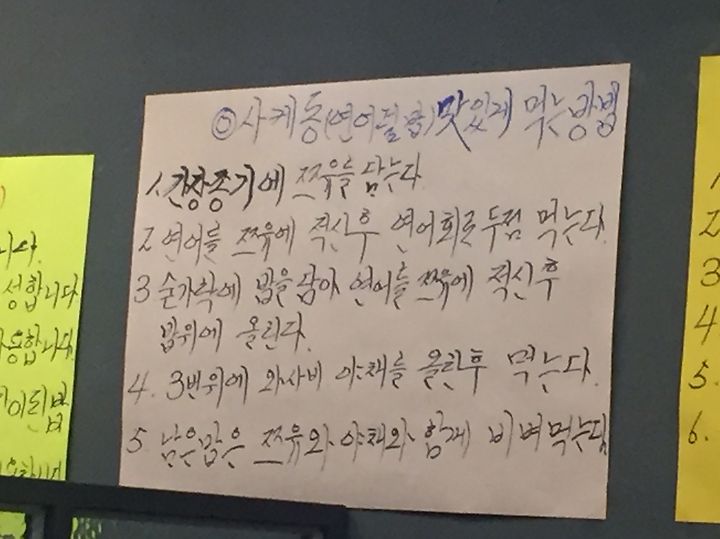 ◎사케동(연어덮밥)맛있게 먹는방법
1.간장종기에 쯔유를 담는다
2 연어를 쯔유에 적신후 연어회로두점 먹는다.
3 숟가락에 밥을 담아 연어를 쯔유에 적신후
밥위에 올린다.
4. 3번위에 와사비 야채를 올린후 먹는다.
5 남은밥은 쯔유와야채와 함께 비벼먹는다
니다.
성합니다
합니다.
1
2
3
4
5.
6.